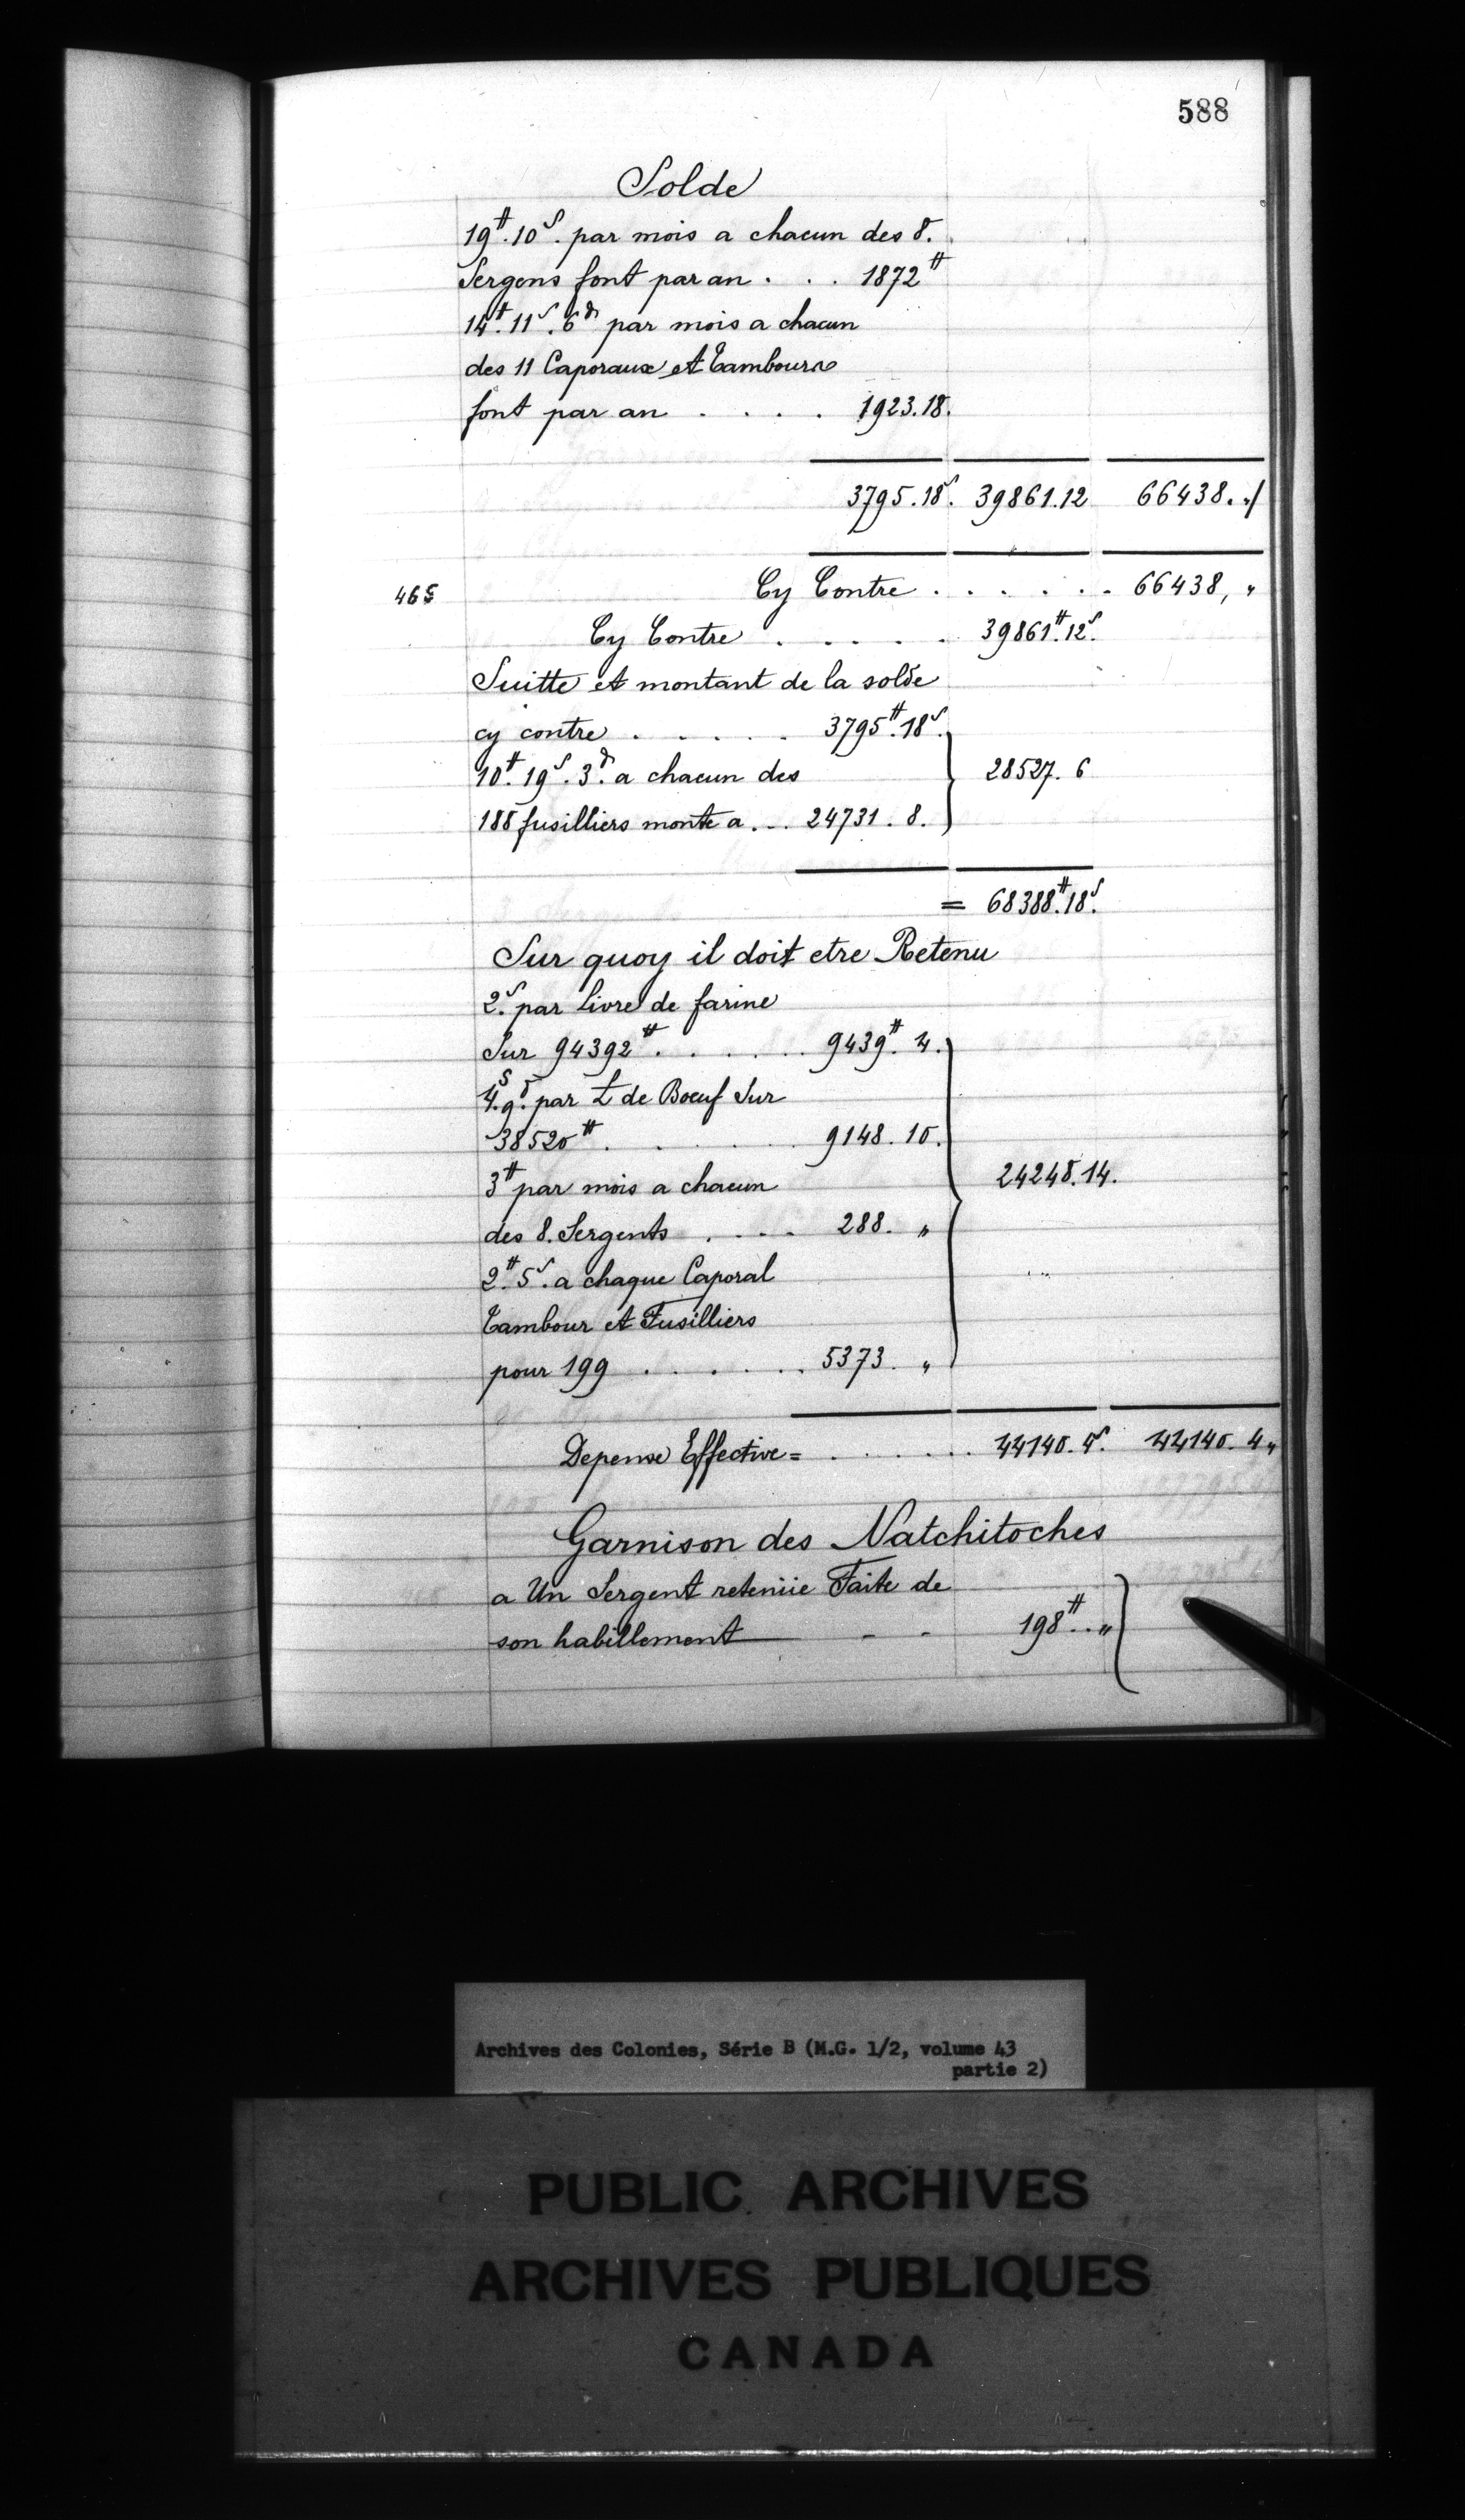 588
Solde
19#.10s. par mois a chacun des 8.
Sergens font par an . . . 1872#
14#.11s.6d par mois a chacun
des 11 Caporaux et Tambours
font par an . . . . 1923.18.
3795.18s. 39861.12 66438. "/
465 Cy Contre . . . . . . 66438, "
Cy Contre . . . . . 39861#.12s.
Suitte et montant de la solde
cy contre . . . . . 3795#.18s.
10#.19s.3d. a chacun des 28527. 6
188 fusilliers monte a . . . 24731. 8.
= 68388#.18s.
Sur quoy il doit etre Retenu
2s. par livre de farine
Sur 94392# . . . . . . 9439#. 4.
4s.9d. par £ de Boeuf Sur
38520# . . . . . 9148. 10.
3# par mois a chacun 24248.14.
des 8. Sergents . . . . 288. "
2#.5s. a chaque Caporal
Tambour et Fusilliers
pour 199 . . . . . . 5373. "
Depense Effective = . . . . . 44140. 4s. 44140. 4 "
Garnison des Natchitoches
a Un Sergent retenüe Faite de
son habillement - - 198# .. "
Archives des Colonies, Série B (M.G. 1/2, volume 43
partie 2)
PUBLIC ARCHIVES
ARCHIVES PUBLIQUES
CANADA